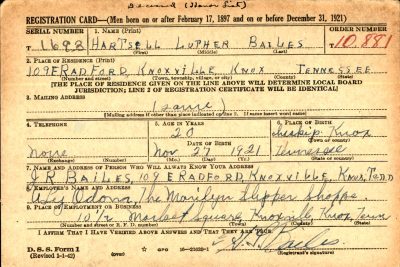 Deceased (Honor List)
REGISTRATION CARD—(Men born on or after February 17, 1897 and on or before December 31, 1921)
SERIAL NUMBER 1. NAME (Print) ORDER NUMBER
T 1698 HARTSELL LUTHER BAILES T10,881
(First) (Middle) (Last)
2. PLACE OF RESIDENCE (Print)
109 E RADFORD KNOXVILLE, KNOX TENNESSEE
(Number and street) (Town, township, village, or city) (County) (State)
[THE PLACE OF RESIDENCE GIVEN ON THE LINE ABOVE WILL DETERMINE LOCAL BOARD
JURISDICTION; LINE 2 OF REGISTRATION CERTIFICATE WILL BE IDENTICAL]
3. MAILING ADDRESS
(same)
(Mailing address if other than place indicated on line 2. If same insert word same)
4. TELEPHONE 5. AGE IN YEARS 6. PLACE OF BIRTH
20 Knox
DATE OF BIRTH (Town or county)
None Nov 27 1921 Tennessee
(Exchange) (Number) (Mo.) (Day) (Yr.) (State or country)
7. NAME AND ADDRESS OF PERSON WHO WILL ALWAYS KNOW YOUR ADDRESS
J R BAILES, 109 E RADFORD, KNOXVILLE, KNX, TENN
8. EMPLOYER'S NAME AND ADDRESS
Odom, The Marilyn Slipper Shoppe
9. PLACE OF EMPLOYMENT OR BUSINESS
10 1/2 Market Square, Knoxville, Knox, Tenn
(Number and street or R. F. D. number) (Town) (County) (State)
I AFFIRM THAT I HAVE VERIFIED ABOVE ANSWERS AND THAT THEY ARE TRUE.
D. S. S. Form 1
(Revised 1-1-42) GPO 16—21630-1 Bailes
(Registrant's signature)